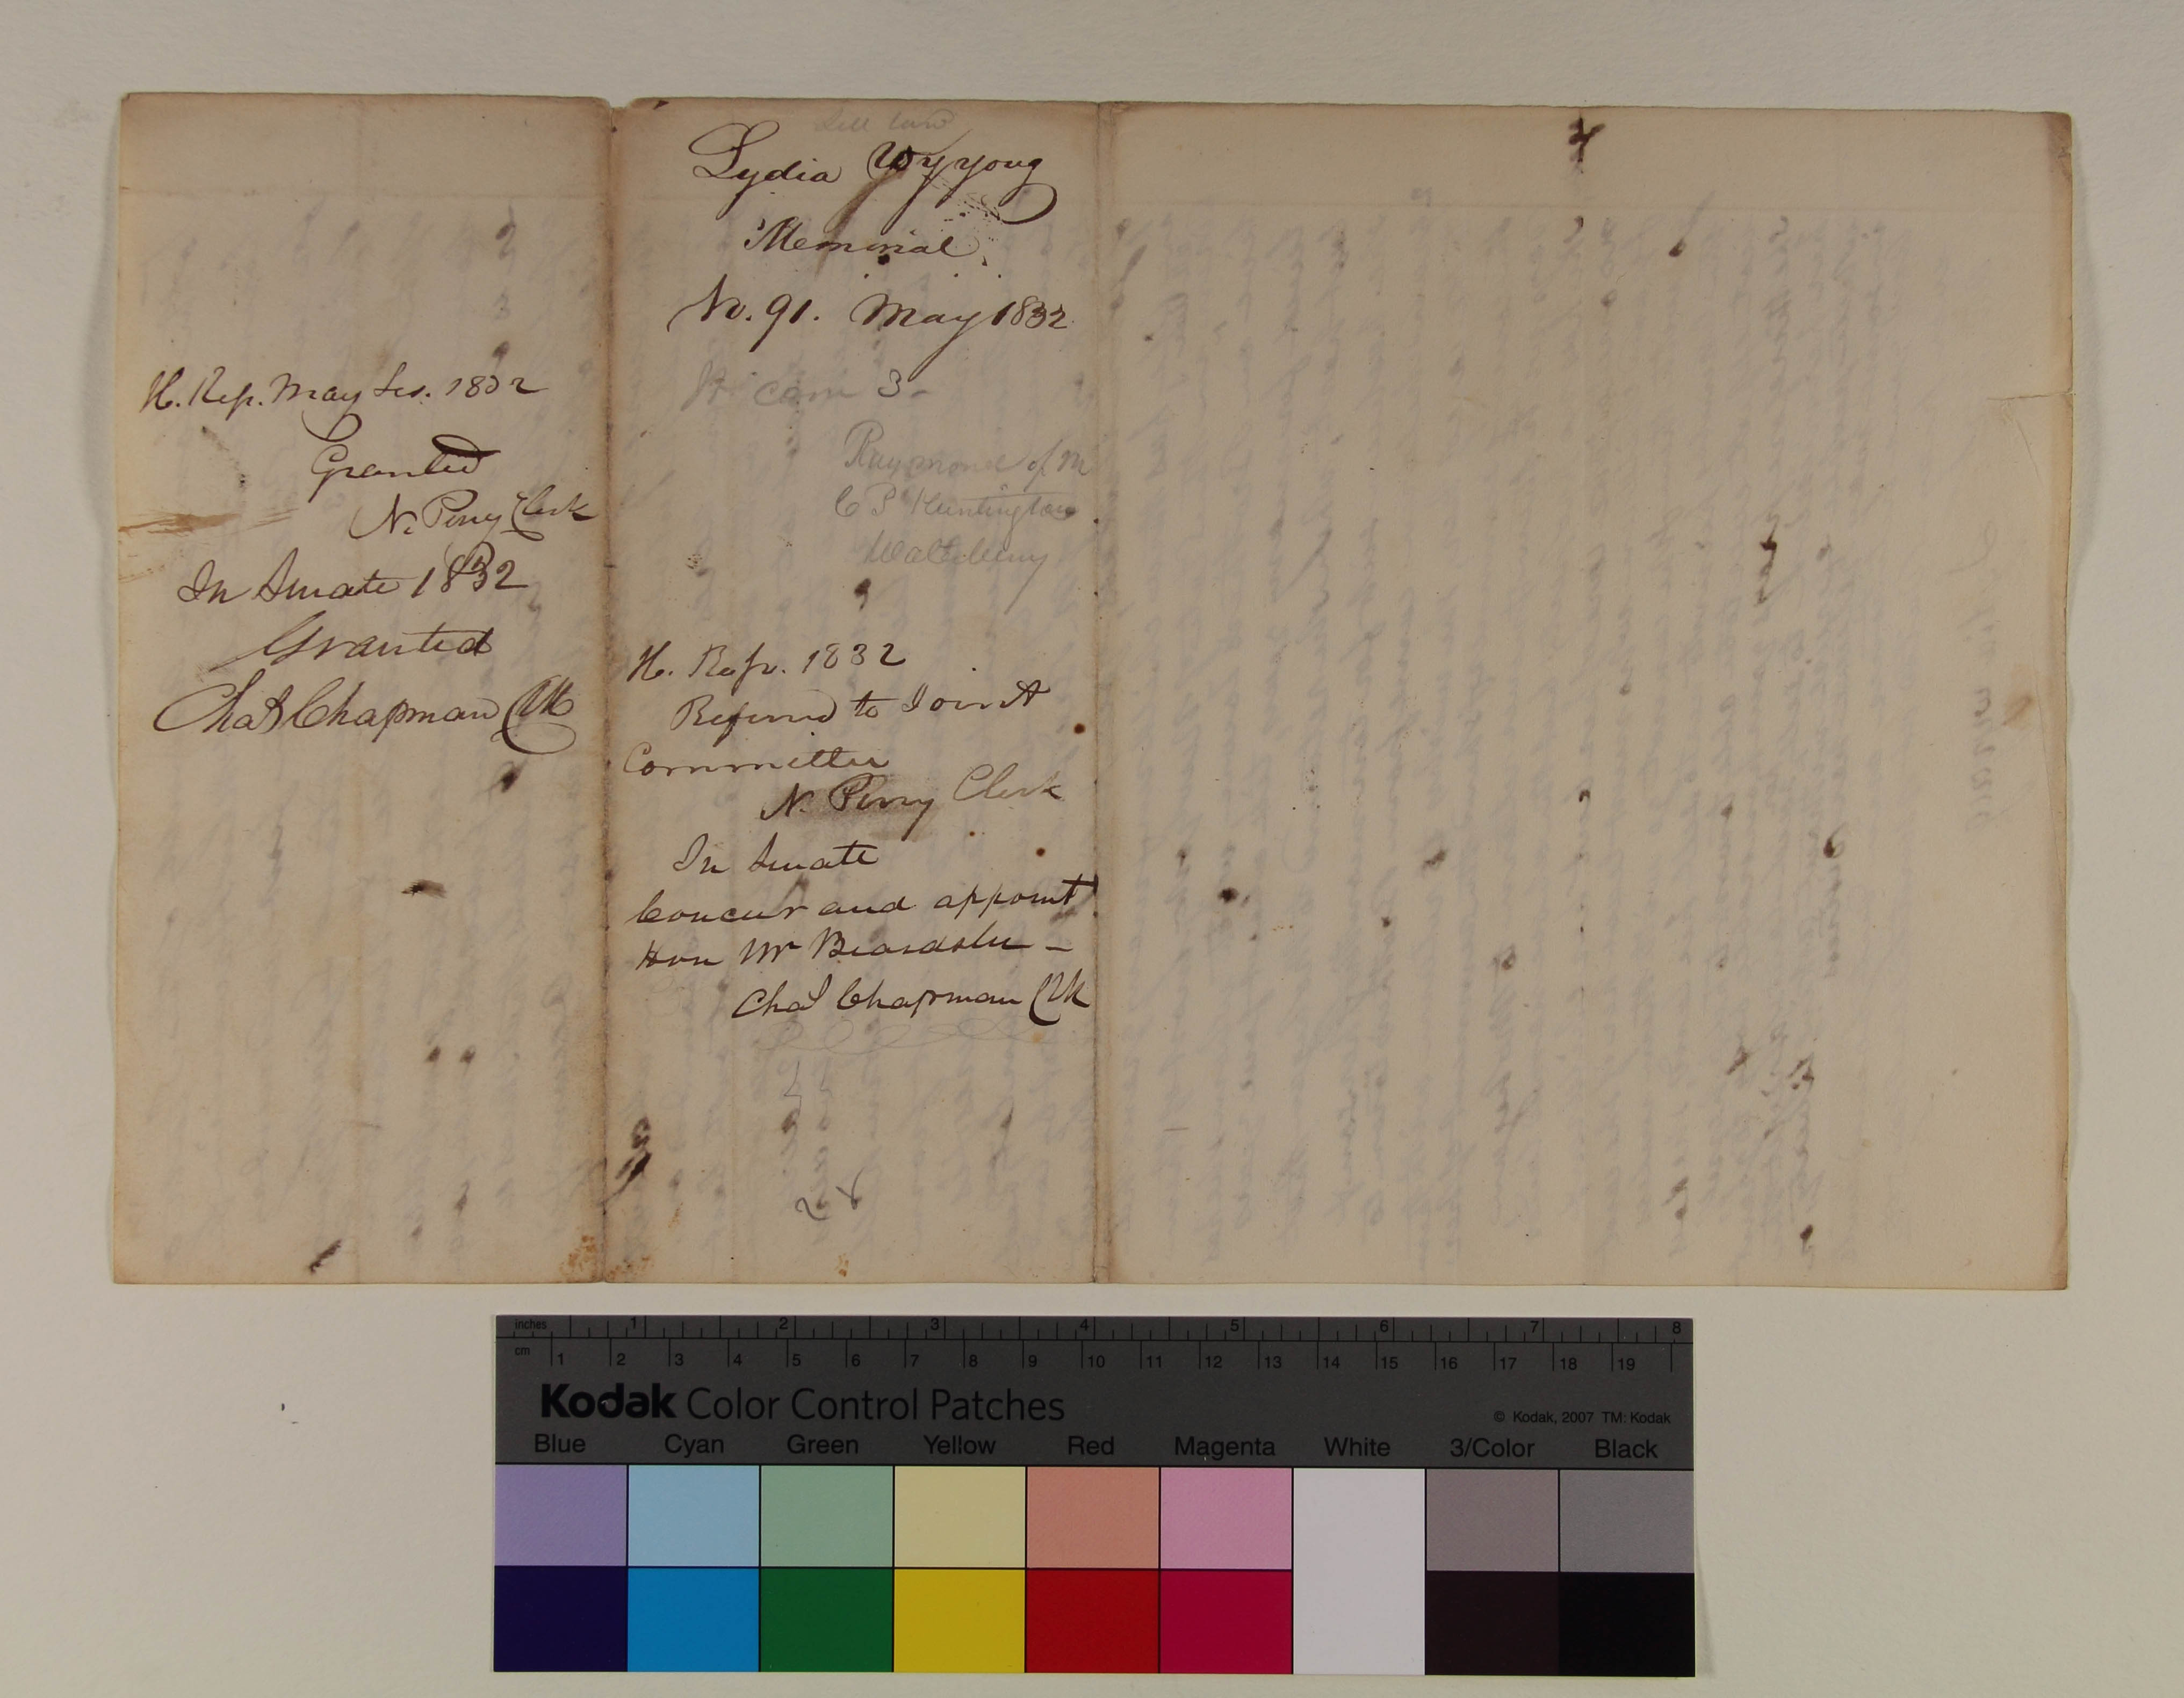 H. Rep. May Ses. 1832
Granted
N. Perry Clerk
In Senate 1832
Granted
Chas Chapman Clk
Sell land
Lydia Wyyoug
Memorial
No. 91. May 1832
Jt com 3-
Raymond of M
C P Huntington
H. Rep. 1832
Referred to Joint
Committee
N. Perry Clerk
In Senate
Concur and appoint
Hon Mr Beardslee -
Chas Chapman Clk
inches 1 2 3 4 5 6 7 8
cm 1 2 3 4 5 6 7 8 9 10 11 12 13 14 15 16 17 18 19
Kodak Color Control Patches
© Kodak, 2007 TM: Kodak
Blue Cyan Green Yellow Red Magenta White 3/Color Black